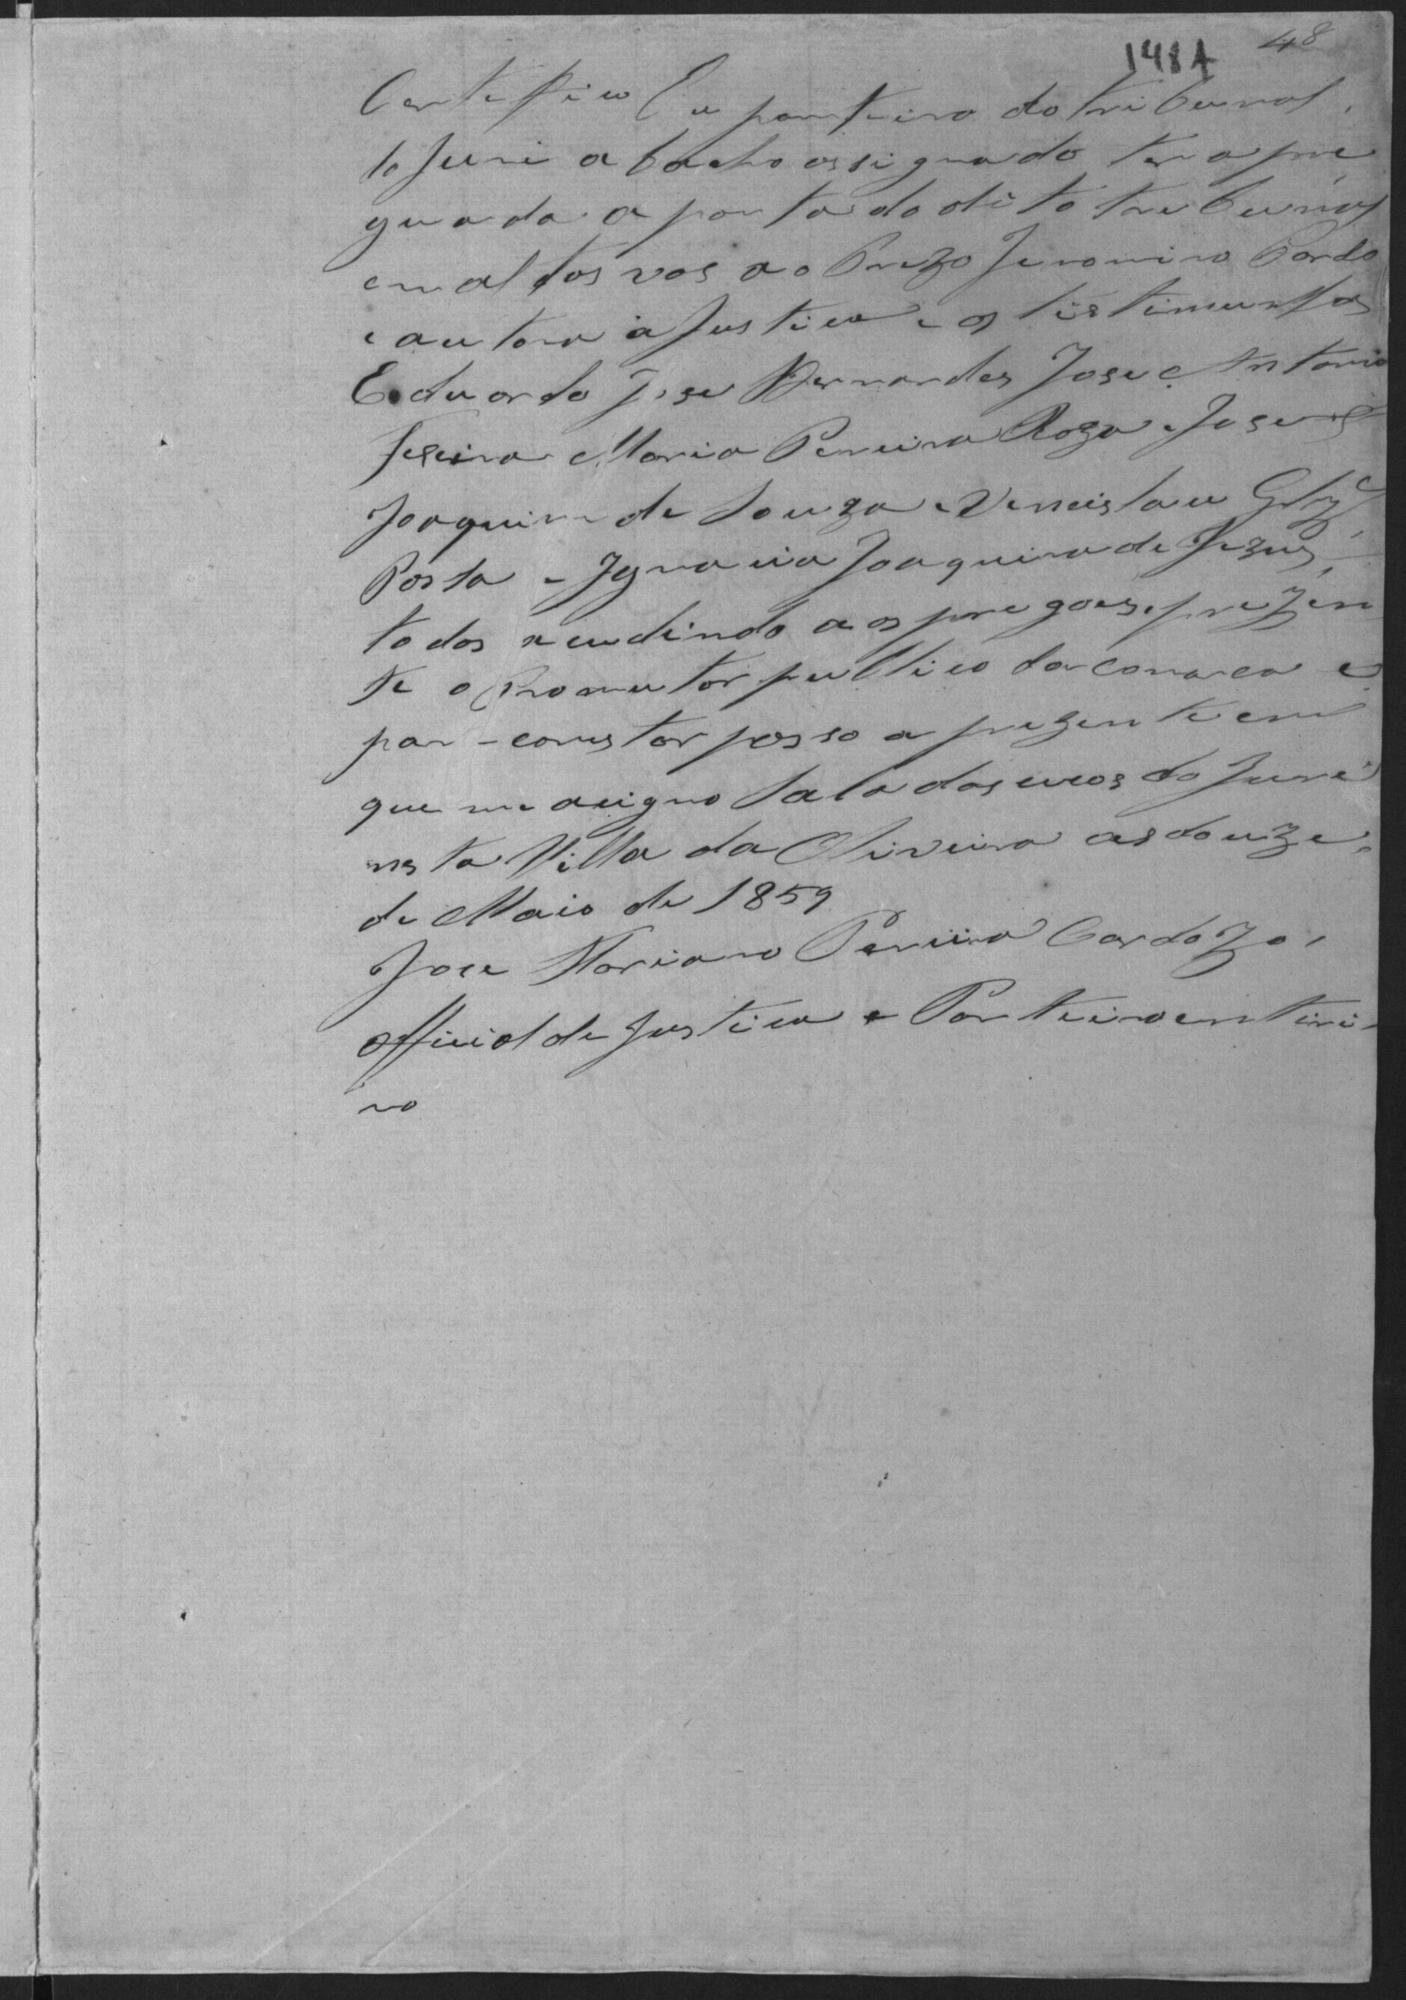 148A 48
Certefico Eu porteiro do tribunal
do Juri abacho assignado ter apre
guado a porta do dito tribunal
em altos vos ao Prezo Jeronimo Pardo
e autora a Justica e as tistimunhas
Eduardo Jose Bernardes Jose Antonio
Maria Pereira Roza e Jose
Joaquim de Souza e Vencislau
Posta e Ignacia Joaquina de Jezus
todos acudindo aos pregoes, prezen
te o Promutor publico da comarca e
par constar passo a prezente em
que me acigno Sala das do Jure
nesta Villa da Oliveira as douze
de Maio de 1859
Jose Mariano Pereira Cardozo
Official de Justica e Porteiro enteri
no